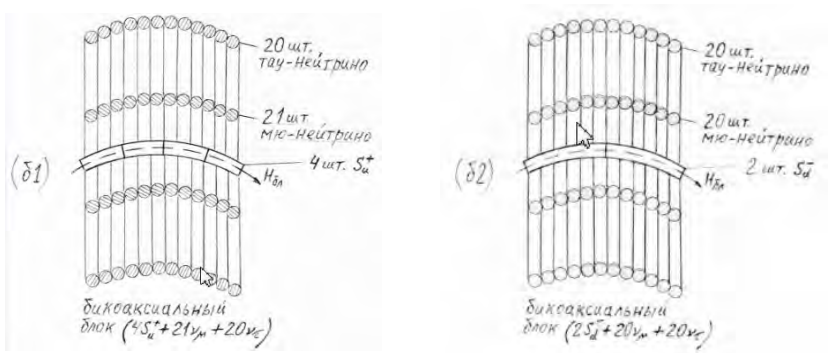 20 шт.
тау-нейтрино
21 шт.
мю-нейтрино
(б1)
4 шт. Sᵤ⁺
Hбл
бикоаксиальный
блок (4Sᵤ⁺+21νμ+20ντ)
20 шт.
тау-нейтрино
20 шт.
мю-нейтрино
(б2)
2 шт. S_d⁻
Hбл
бикоаксиальный
блок (2S_d⁻+20νμ+20ντ)